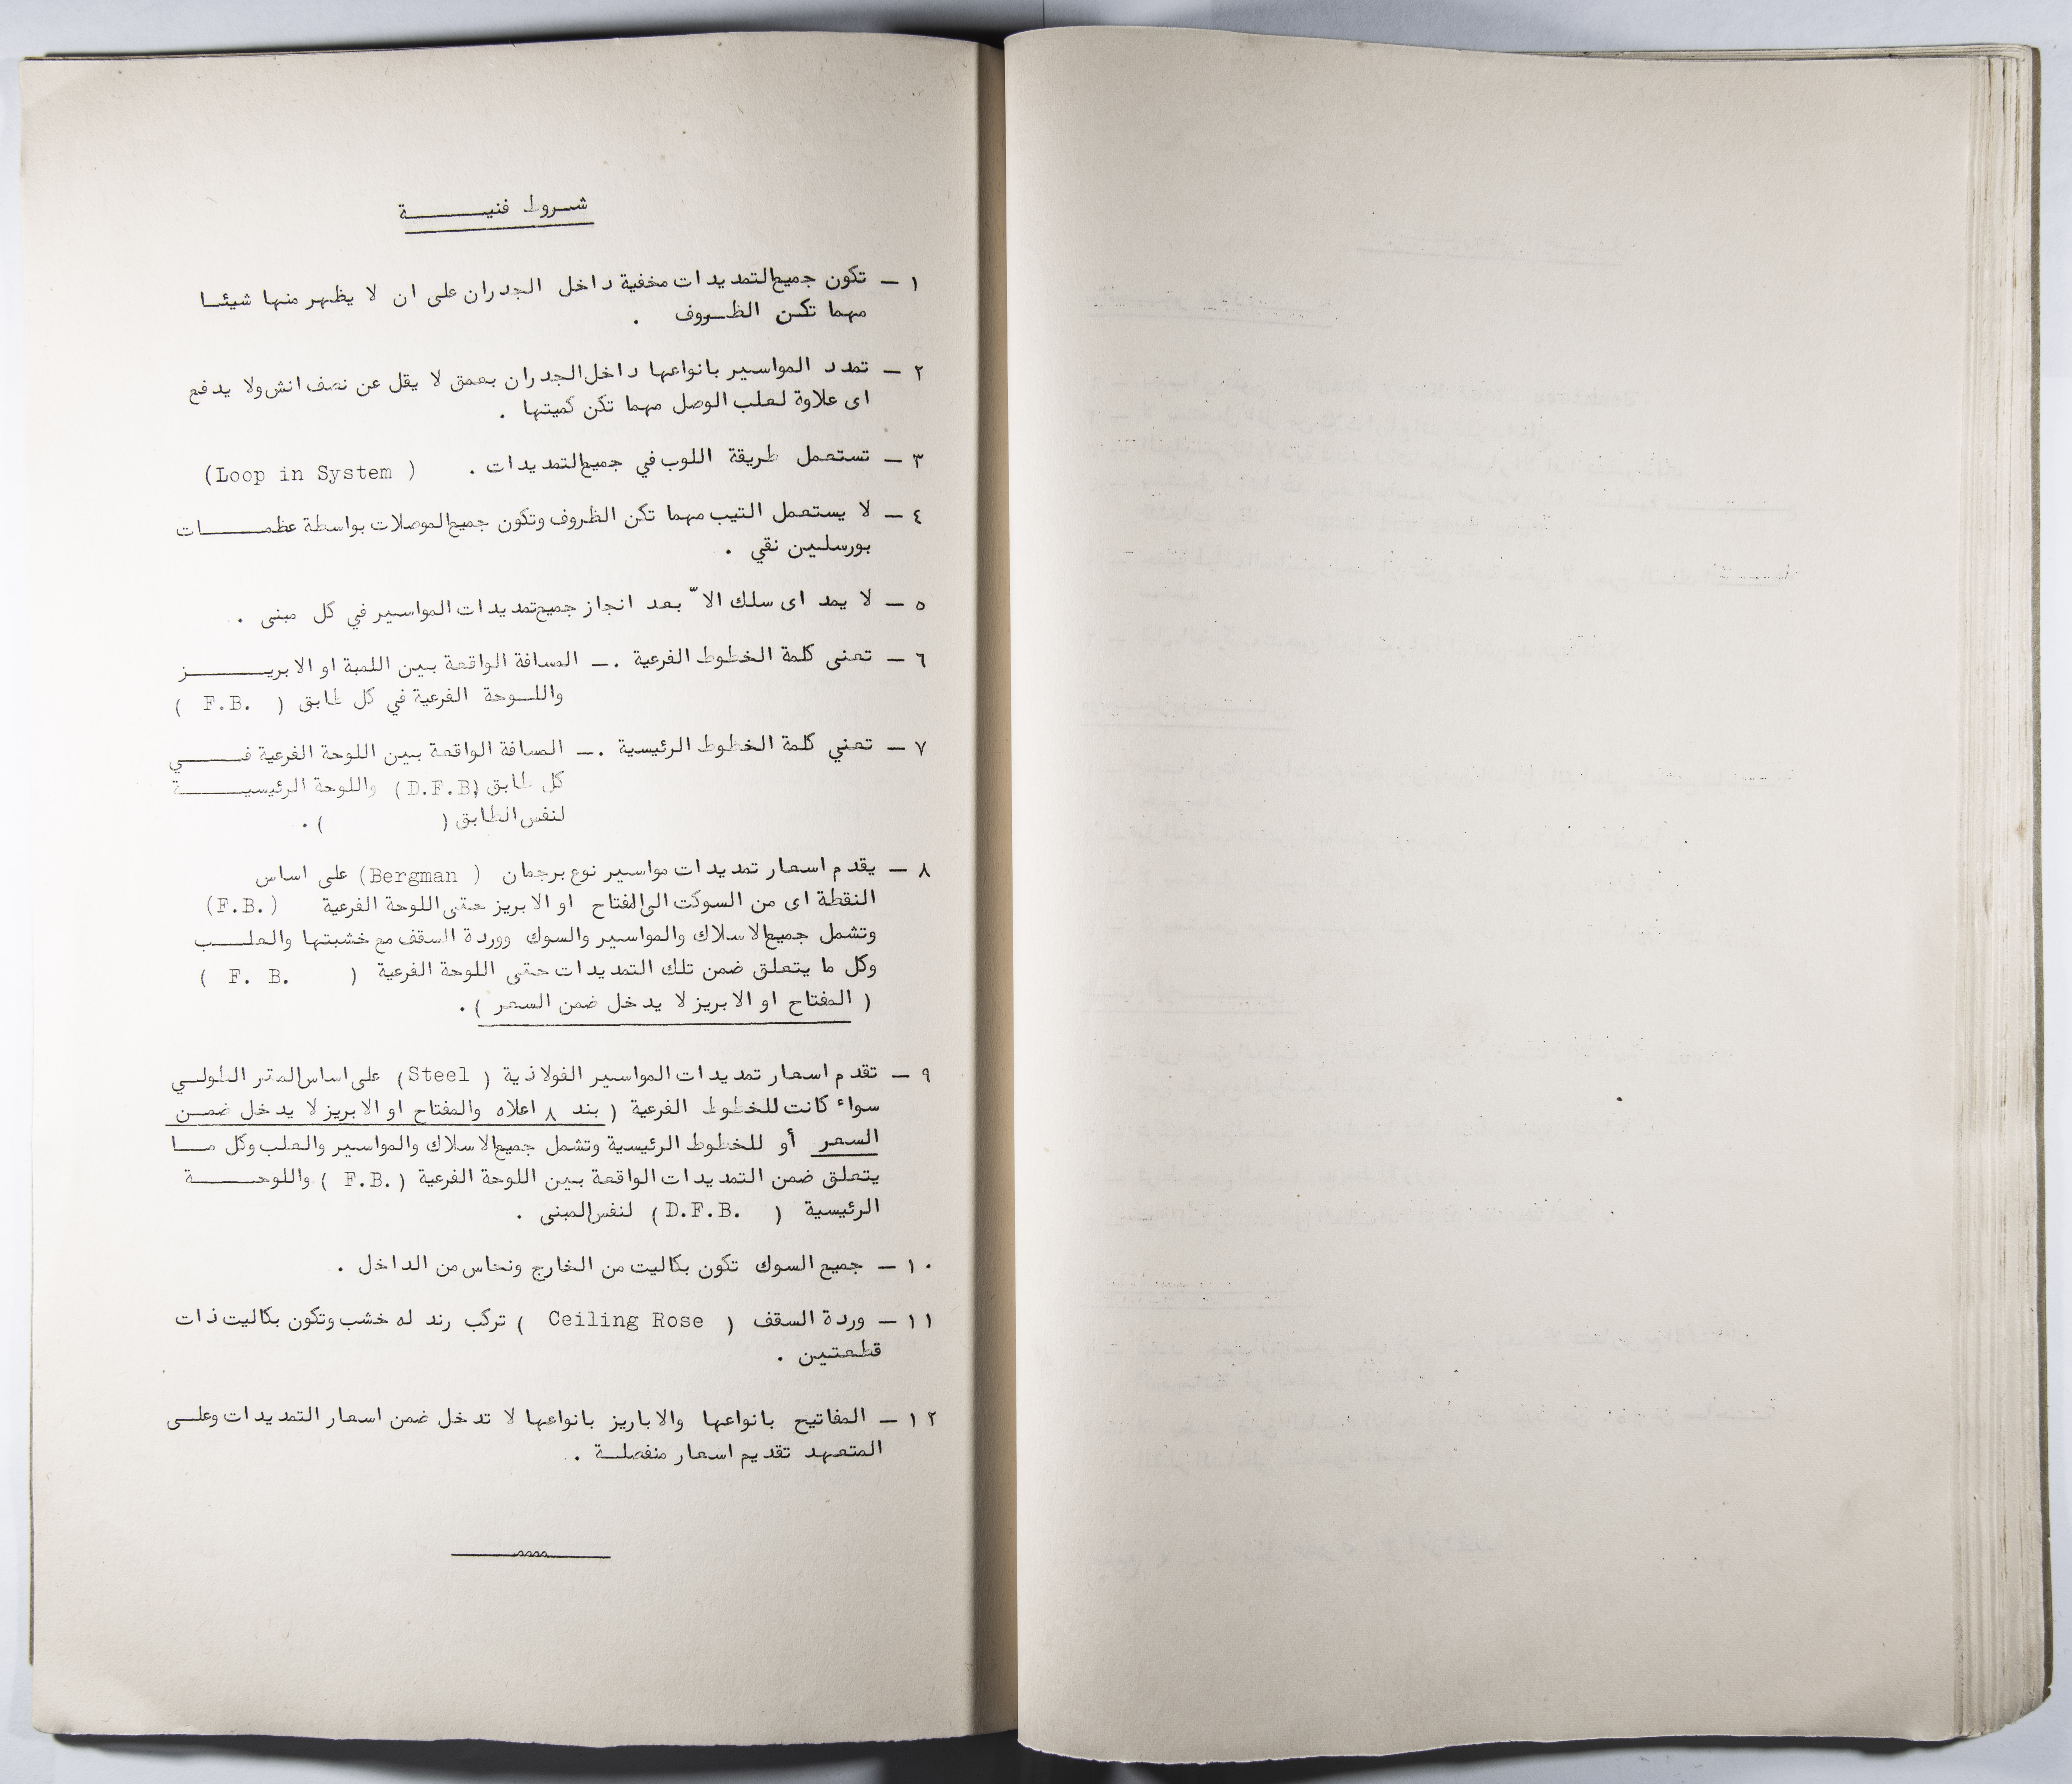 شروط فنية
١ – تكون جميع التمديدات مخفية داخل الجدران على ان لا يظهر منها شيئا
مهما تكن الظروف .
٢ – تمدد المواسير بانواعها داخل الجدران بعمق لا يقل عن نصف انش ولا يدفع
اى علاوة لعلب الوصل مهما تكن كميتها .
٣ – تستعمل طريقة اللوب في جميع التمديدات . (Loop in System)
٤ – لا يستعمل التيب مهما تكن الظروف وتكون جميع الموصلات بواسطة عظمات
بورسلين نقي .
٥ – لا يمد اى سلك الاّ بعد انجاز جميع تمديدات المواسير في كل مبنى .
٦ – تعنى كلمة الخطوط الفرعية .– المسافة الواقعة بين اللمبة او الابريز
واللوحة الفرعية في كل طابق ( F.B. )
٧ – تعني كلمة الخطوط الرئيسية .– المسافة الواقعة بين اللوحة الفرعية في
كل طابق (D.F.B) واللوحة الرئيسية
لنفس الطابق ( ) .
٨ – يقدم اسعار تمديدات مواسير نوع برجمان (Bergman) على اساس
النقطة اى من السوكت الى المفتاح او الابريز حتى اللوحة الفرعية (F.B.)
وتشمل جميع الاسلاك والمواسير والسوك ووردة السقف مع خشبتها والعلب
وكل ما يتعلق ضمن تلك التمديدات حتى اللوحة الفرعية ( F. B. )
( المفتاح او الابريز لا يدخل ضمن السعر ) .
٩ – تقدم اسعار تمديدات المواسير الفولاذية (Steel) على اساس المتر الطولي
سواء كانت للخطوط الفرعية ( بند ٨ اعلاه والمفتاح او الابريز لا يدخل ضمن
السعر أو للخطوط الرئيسية وتشمل جميع الاسلاك والمواسير والعلب وكل ما
يتعلق ضمن التمديدات الواقعة بين اللوحة الفرعية (F.B.) واللوحة
الرئيسية (D.F.B.) لنفس المبنى .
١٠ – جميع السوك تكون بكاليت من الخارج ونحاس من الداخل .
١١ – وردة السقف ( Ceiling Rose ) تركب رند له خشب وتكون بكاليت ذات
قطعتين .
١٢ – المفاتيح بانواعها والاباريز بانواعها لا تدخل ضمن اسعار التمديدات وعلى
المتعهد تقديم اسعار منفصلة .